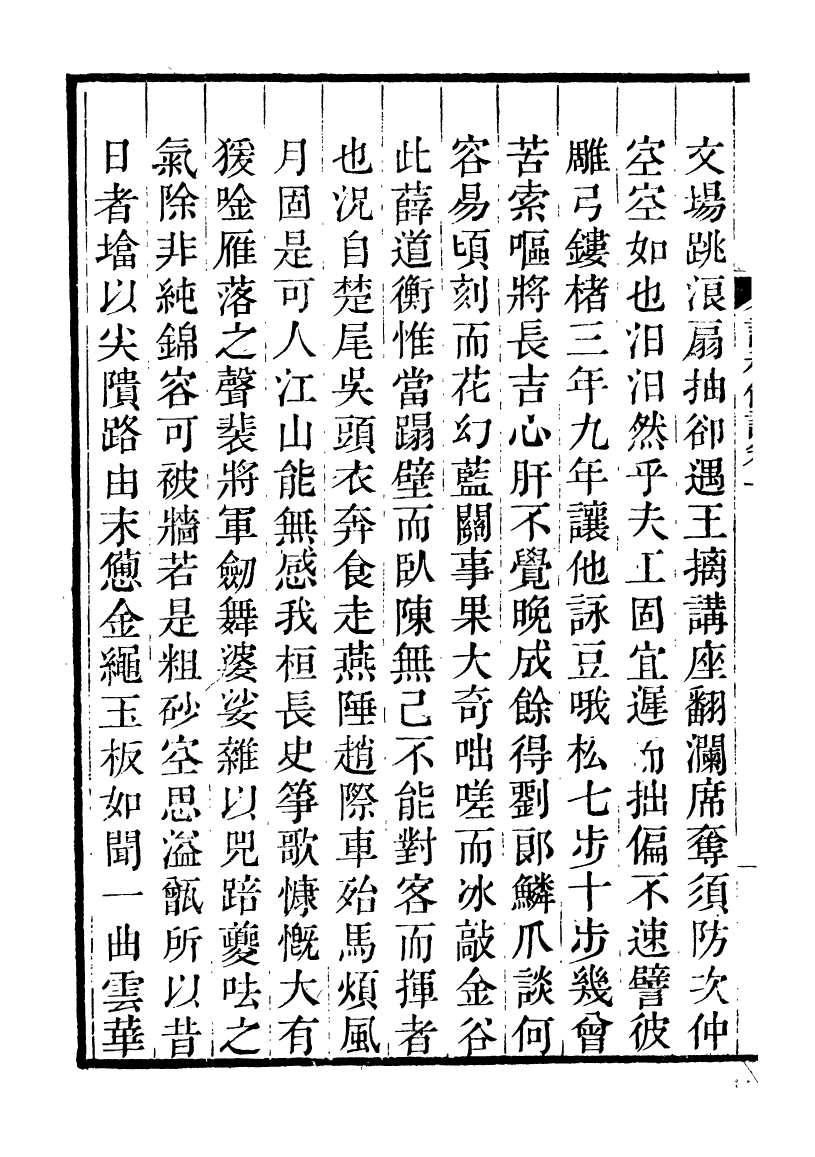 文場跳浪扇抽卻遇王摛講座翻瀾席奪須防次仲
空空如也汨汨然乎夫工固宜遲而拙偏不速譬彼
雕弓鏤楮三年九年讓他詠豆哦松七步十步幾曾
苦索嘔將長吉心肝不覺晚成餘得劉郞鱗爪談何
容易頃刻而花幻藍關事果大奇咄嗟而冰敲金谷
此薛道衡惟當蹋壁而臥陳無己不能對客而揮者
也況自楚尾吳頭衣奔食走燕陲趙際車殆馬煩風
月固是可人江山能無感我桓長史箏歌慷慨大有
猨唫雁落之聲裴將軍劒舞婆娑雜以兕踣夔呿之
氣除非純錦容可被牆若是粗砂空思溢甑所以昔
日者墖以尖隤路由末憊金繩玉板如聞一曲雲華